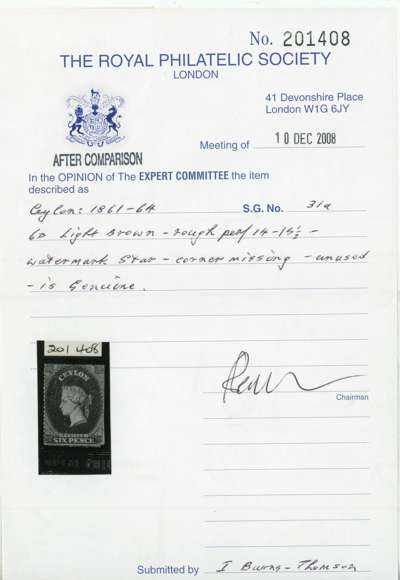 No. 201408
THE ROYAL PHILATELIC SOCIETY
LONDON
41 Devonshire Place
London W1G 6JY
Meeting of 10 DEC 2008
AFTER COMPARISON
In the OPINION of The EXPERT COMMITTEE the item
described as
Ceylon: 1861-64 S.G. No. 31a
6d Light Brown - rough perf 14-15½ -
watermark Star - corner missing - unused
- is Genuine.
201 408
CEYLON
SIX PENCE
Chairman
Submitted by I Burns-Thomson